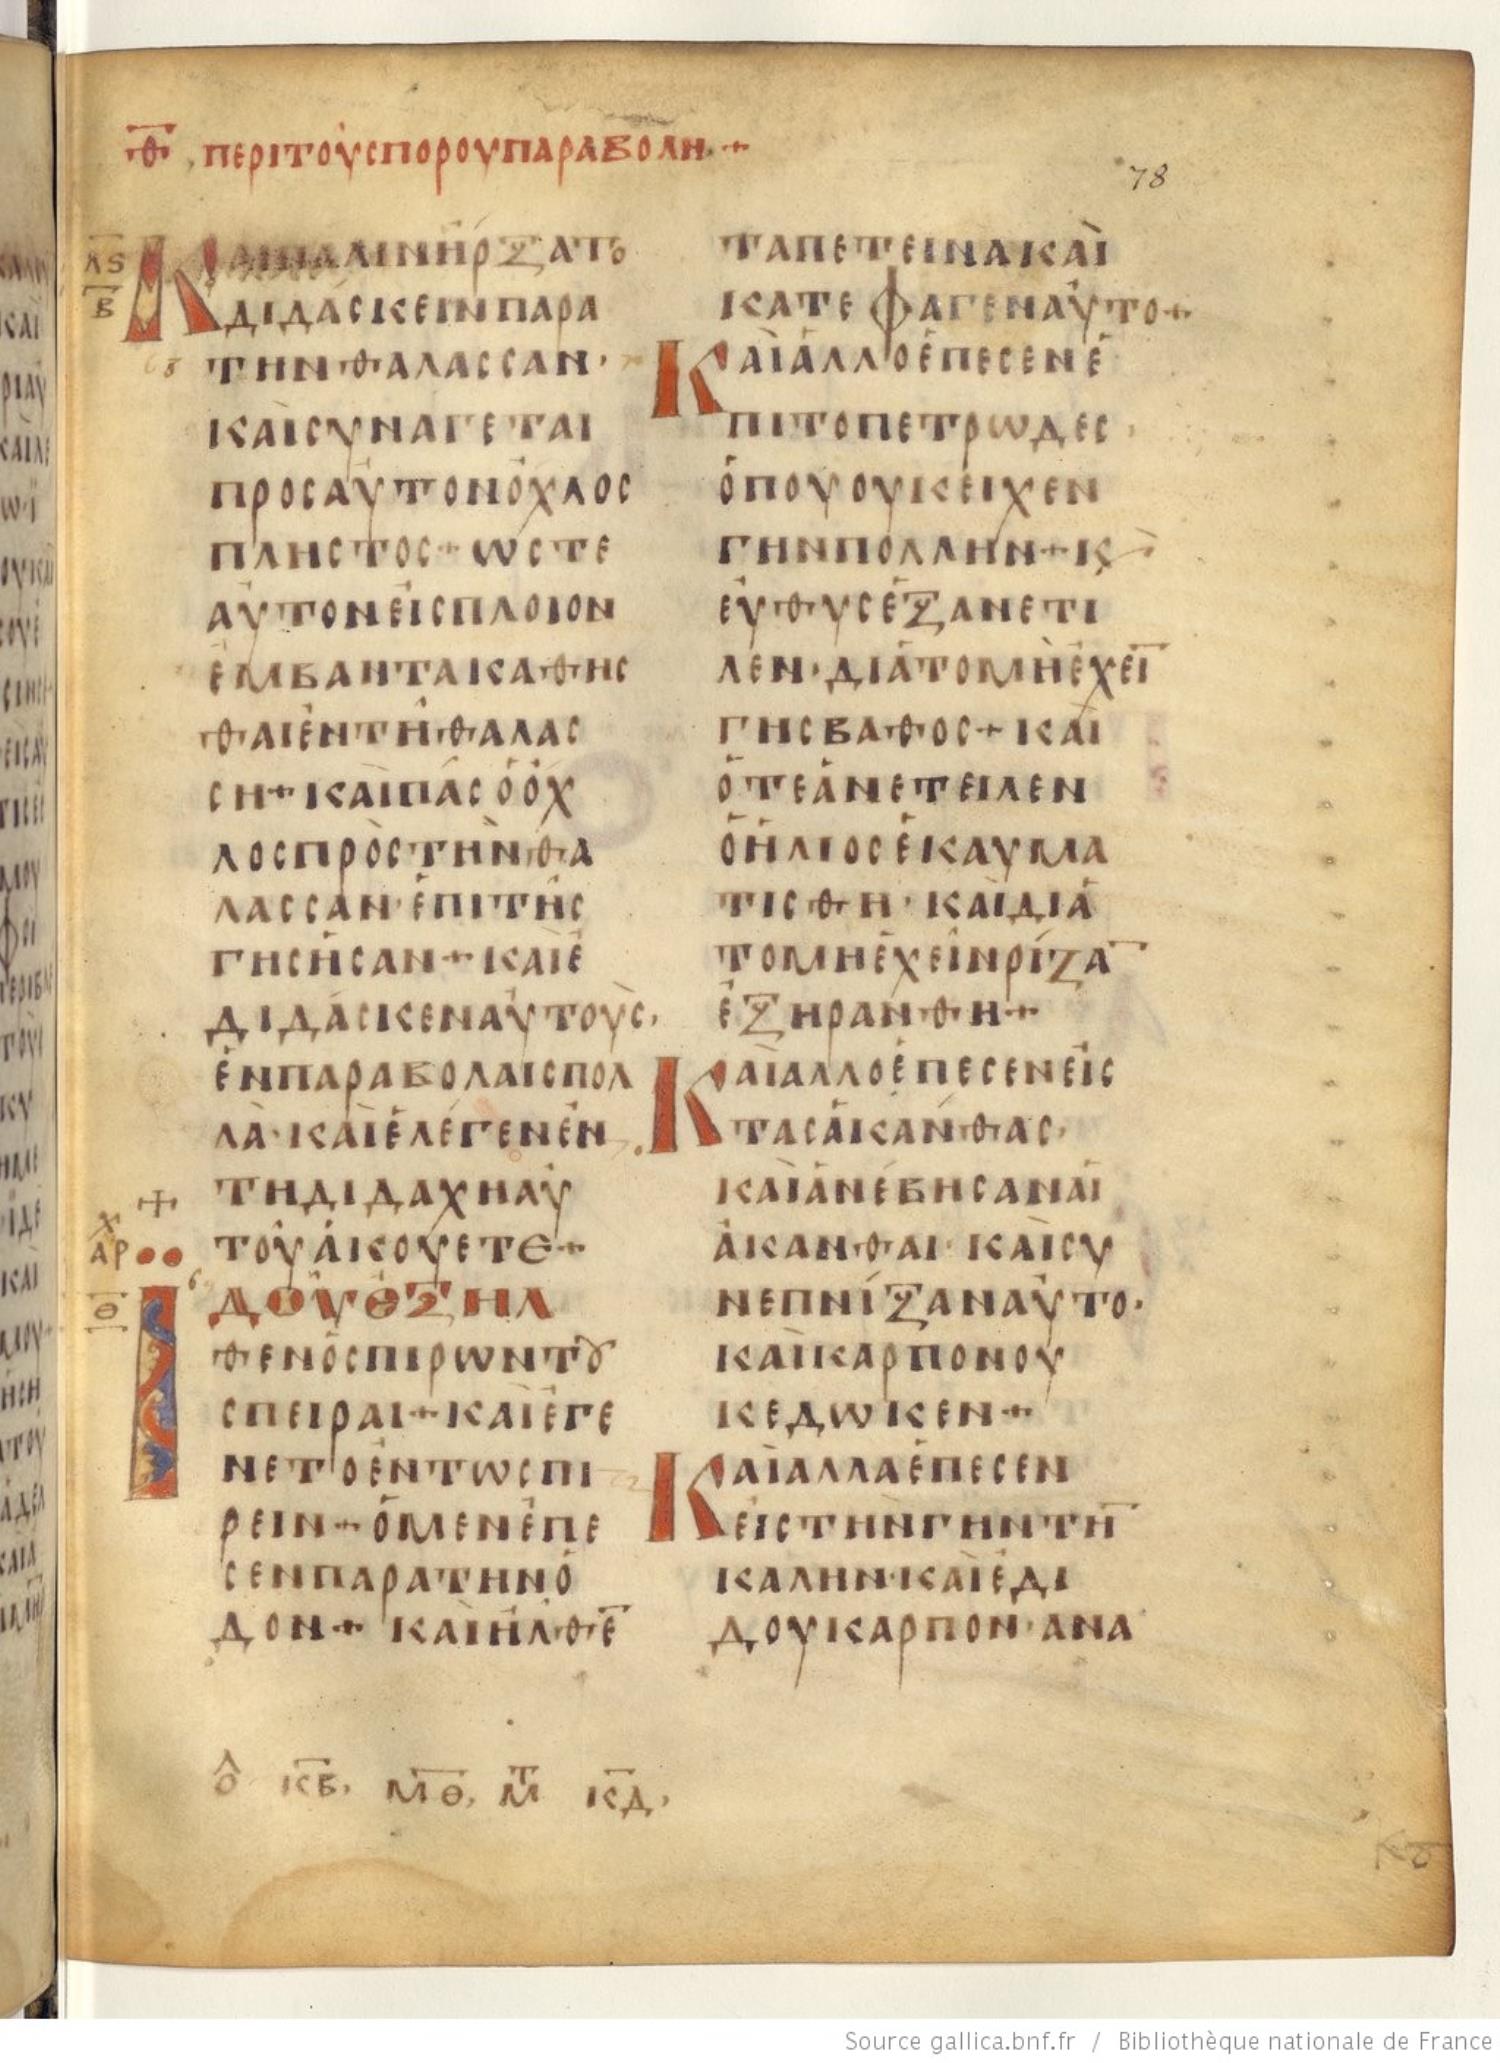 Θ ΠΕΡΙΤΟΥΣΠΟΡΟΥΠΑΡΑΒΟΛΗ
78
ΛϚ
Β
ΚΑΙΠΑΛΙΝΗΡΞΑΤΟ
ΔΙΔΑΣΚΕΙΝΠΑΡΑ
ΤΗΝΘΑΛΑΣΣΑΝ·
ΚΑΙΣΥΝΑΓΕΤΑΙ
ΠΡΟΣΑΥΤΟΝΟΧΛΟΣ
ΠΛΗΣΤΟΣ+ΩΣΤΕ
ΑΥΤΟΝΕΙΣΠΛΟΙΟΝ
ΕΜΒΑΝΤΑΚΑΘΗΣ
ΘΑΙΕΝΤΗΘΑΛΑΣ
ΣΗ+ΚΑΙΠΑΣΟΟΧ
ΛΟΣΠΡΟΣΤΗΝΘΑ
ΛΑΣΣΑΝ·ΕΠΙΤΗΣ
ΓΗΣΗΣΑΝ+ΚΑΙΕ
ΔΙΔΑΣΚΕΝΑΥΤΟΥΣ,
ΕΝΠΑΡΑΒΟΛΑΙΣΠΟΛ
ΛΑ·ΚΑΙΕΛΕΓΕΝΕΝ
ΤΗΔΙΔΑΧΗΑΥ
ΤΟΥΑΚΟΥΕΤΕ+
ΑΡΧ
Θ
ΙΔΟΥΕΞΗΛ
ΘΕΝΟΣΠΙΡΩΝΤȢ
ΣΠΕΙΡΑΙ+ΚΑΙΕΓΕ
ΝΕΤΟΕΝΤΩΣΠΙ
ΡΕΙΝ+ΟΜΕΝΕΠΕ
ΣΕΝΠΑΡΑΤΗΝΟ
ΔΟΝ+ΚΑΙΗΛΘΕ̅
ΤΑΠΕΤΕΙΝΑΚΑΙ
ΚΑΤΕΦΑΓΕΝΑΥΤΟ+
ΚΑΙΑΛΛΟΕΠΕΣΕΝΕ
ΠΙΤΟΠΕΤΡΩΔΕΣ,
ΟΠΟΥΟΥΚΕΙΧΕΝ
ΓΗΝΠΟΛΛΗΝ+Κϗ
ΕΥΘΥΣΕΞΑΝΕΤΙ
ΛΕΝ·ΔΙΑΤΟΜΗΕΧΕΙ̅
ΓΗΣΒΑΘΟΣ+ΚΑΙ
ΟΤΕΑΝΕΤΕΙΛΕΝ
ΟΗΛΙΟΣΕΚΑΥΜΑ
ΤΙΣΘΗ·ΚΑΙΔΙΑ
ΤΟΜΗΕΧΕΙΝΡΙΖΑ̅
ΕΞΗΡΑΝΘΗ+
ΚΑΙΑΛΛΟΕΠΕΣΕΝΕΙΣ
ΤΑΣΑΚΑΝΘΑΣ,
ΚΑΙΑΝΕΒΗΣΑΝΑΙ
ΑΚΑΝΘΑΙ·ΚΑΙΣΥ
ΝΕΠΝΙΞΑΝΑΥΤΟ·
ΚΑΙΚΑΡΠΟΝΟΥ
ΚΕΔΩΚΕΝ+
ΚΑΙΑΛΛΑΕΠΕΣΕΝ
ΕΙΣΤΗΝΓΗΝΤΗ̅
ΚΑΛΗΝ·ΚΑΙΕΔΙ
ΔΟΥΚΑΡΠΟΝ·ΑΝΑ
ΛΟ ΚΒ, ΜΘ, ΜΤ ΚΔ,
Source gallica.bnf.fr / Bibliothèque nationale de France